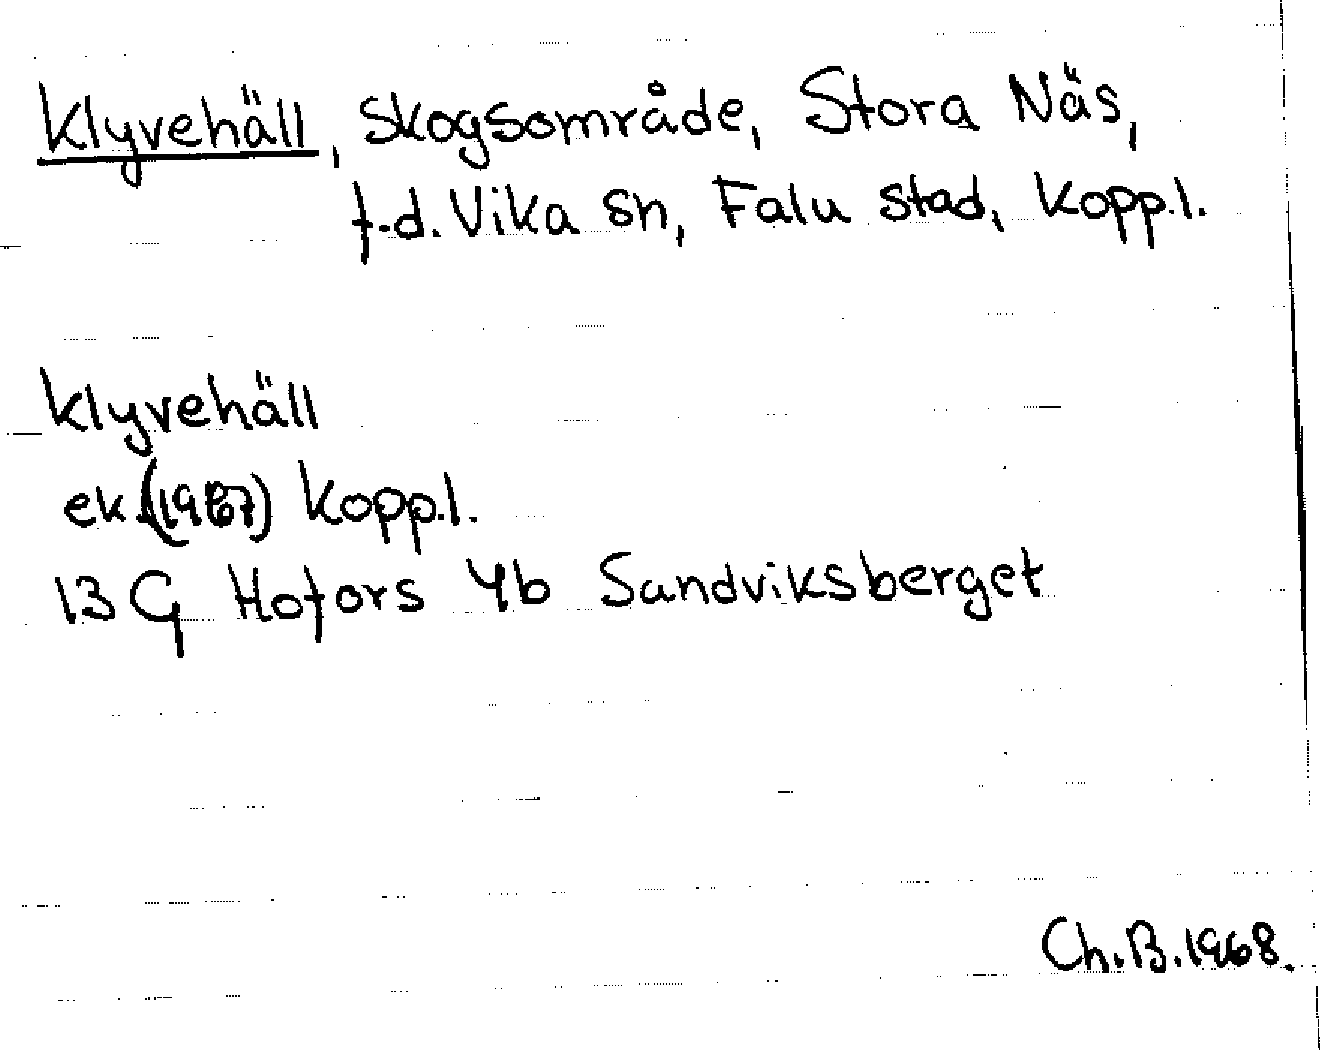 Klyvehäll, skogsområde, Stora Näs,
f.d. Vika sn, Falu stad, Kopp.l.
Klyvehäll
ek.(1967) Kopp.l.
13 G Hofors 4b Sandviksberget
Ch.B.1968.